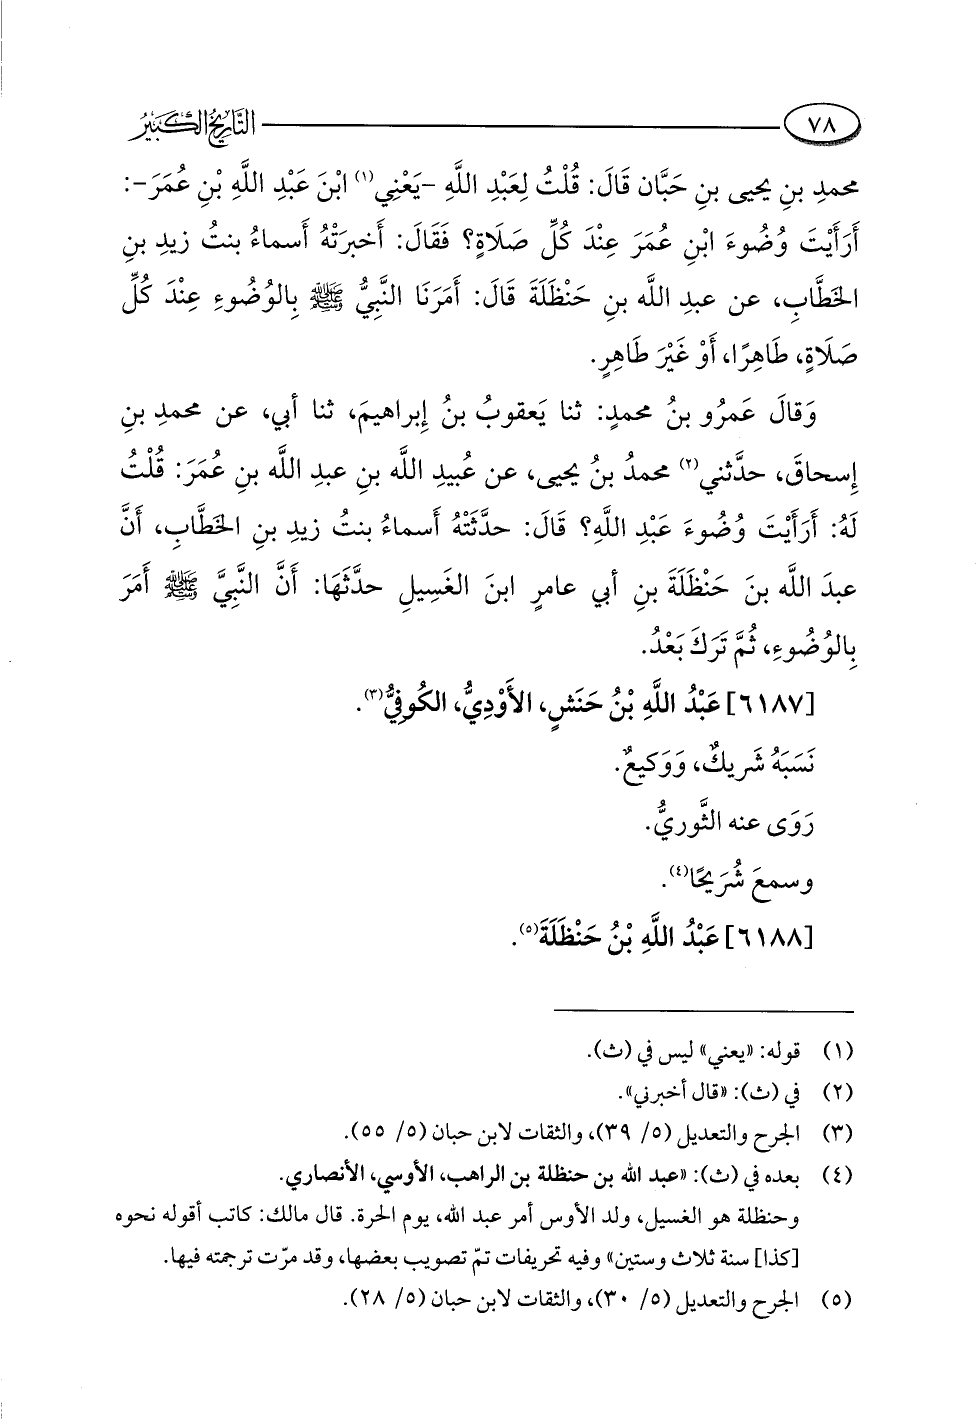 ٧٨ التَّارِيخُ الكَبِيرُ
محمدِ بنِ يحيى بنِ حَبَّان قَالَ: قُلْتُ لِعَبْدِ اللَّهِ -يَعْنِي(١) ابْنَ عَبْدِ اللَّهِ بْنِ عُمَرَ-:
أَرَأَيْتَ وُضُوءَ ابْنِ عُمَرَ عِنْدَ كُلِّ صَلَاةٍ؟ فَقَالَ: أَخبرَتْهُ أَسماءُ بنتُ زيدِ بنِ
الخَطَّابِ، عن عبدِ الله بنِ حَنْظَلَةَ قَالَ: أَمَرَنَا النَّبِيُّ ﷺ بِالوُضُوءِ عِنْدَ كُلِّ
صَلَاةٍ، طَاهِرًا، أَوْ غَيْرَ طَاهِرٍ.
وَقالَ عَمرُو بنُ محمدٍ: ثنا يَعقوبُ بنُ إبراهيمَ، ثنا أبي، عن محمدِ بنِ
إسحاقَ، حدَّثني(٢) محمدُ بنُ يحيى، عن عُبيدِ الله بنِ عبدِ الله بنِ عُمَرَ: قُلْتُ
لَهُ: أَرَأَيْتَ وُضُوءَ عَبْدِ اللَّهِ؟ قَالَ: حدَّثَتْهُ أَسماءُ بنتُ زيدِ بنِ الخَطَّابِ، أَنَّ
عبدَ الله بنَ حَنْظَلَةَ بنِ أبي عامرٍ ابنَ الغَسِيلِ حدَّثَهَا: أَنَّ النَّبِيَّ ﷺ أَمَرَ
بِالوُضُوءِ، ثُمَّ تَرَكَ بَعْدُ.
[٦١٨٧] عَبْدُ اللَّهِ بْنُ حَنَشٍ، الأَوْدِيُّ، الكُوفِيُّ(٣).
نَسَبَهُ شَرِيكٌ، وَوَكيعٌ.
رَوَى عنه الثَّوريُّ.
وسمعَ شُرَيحًا(٤).
[٦١٨٨] عَبْدُ اللَّهِ بْنُ حَنْظَلَةَ(٥).
(١) قوله: «يعني» ليس في (ث).
(٢) في (ث): «قال أخبرني».
(٣) الجرح والتعديل (٥/ ٣٩)، والثقات لابن حبان (٥/ ٥٥).
(٤) بعده في (ث): «عبد الله بن حنظلة بن الراهب، الأوسي، الأنصاري.
وحنظلة هو الغسيل، ولد الأوس أمر عبد الله، يوم الحرة. قال مالك: كاتب أقوله نحوه
[كذا] سنة ثلاث وستين» وفيه تحريفات تمّ تصويب بعضها، وقد مرّت ترجمته فيها.
(٥) الجرح والتعديل (٥/ ٣٠)، والثقات لابن حبان (٥/ ٢٨).